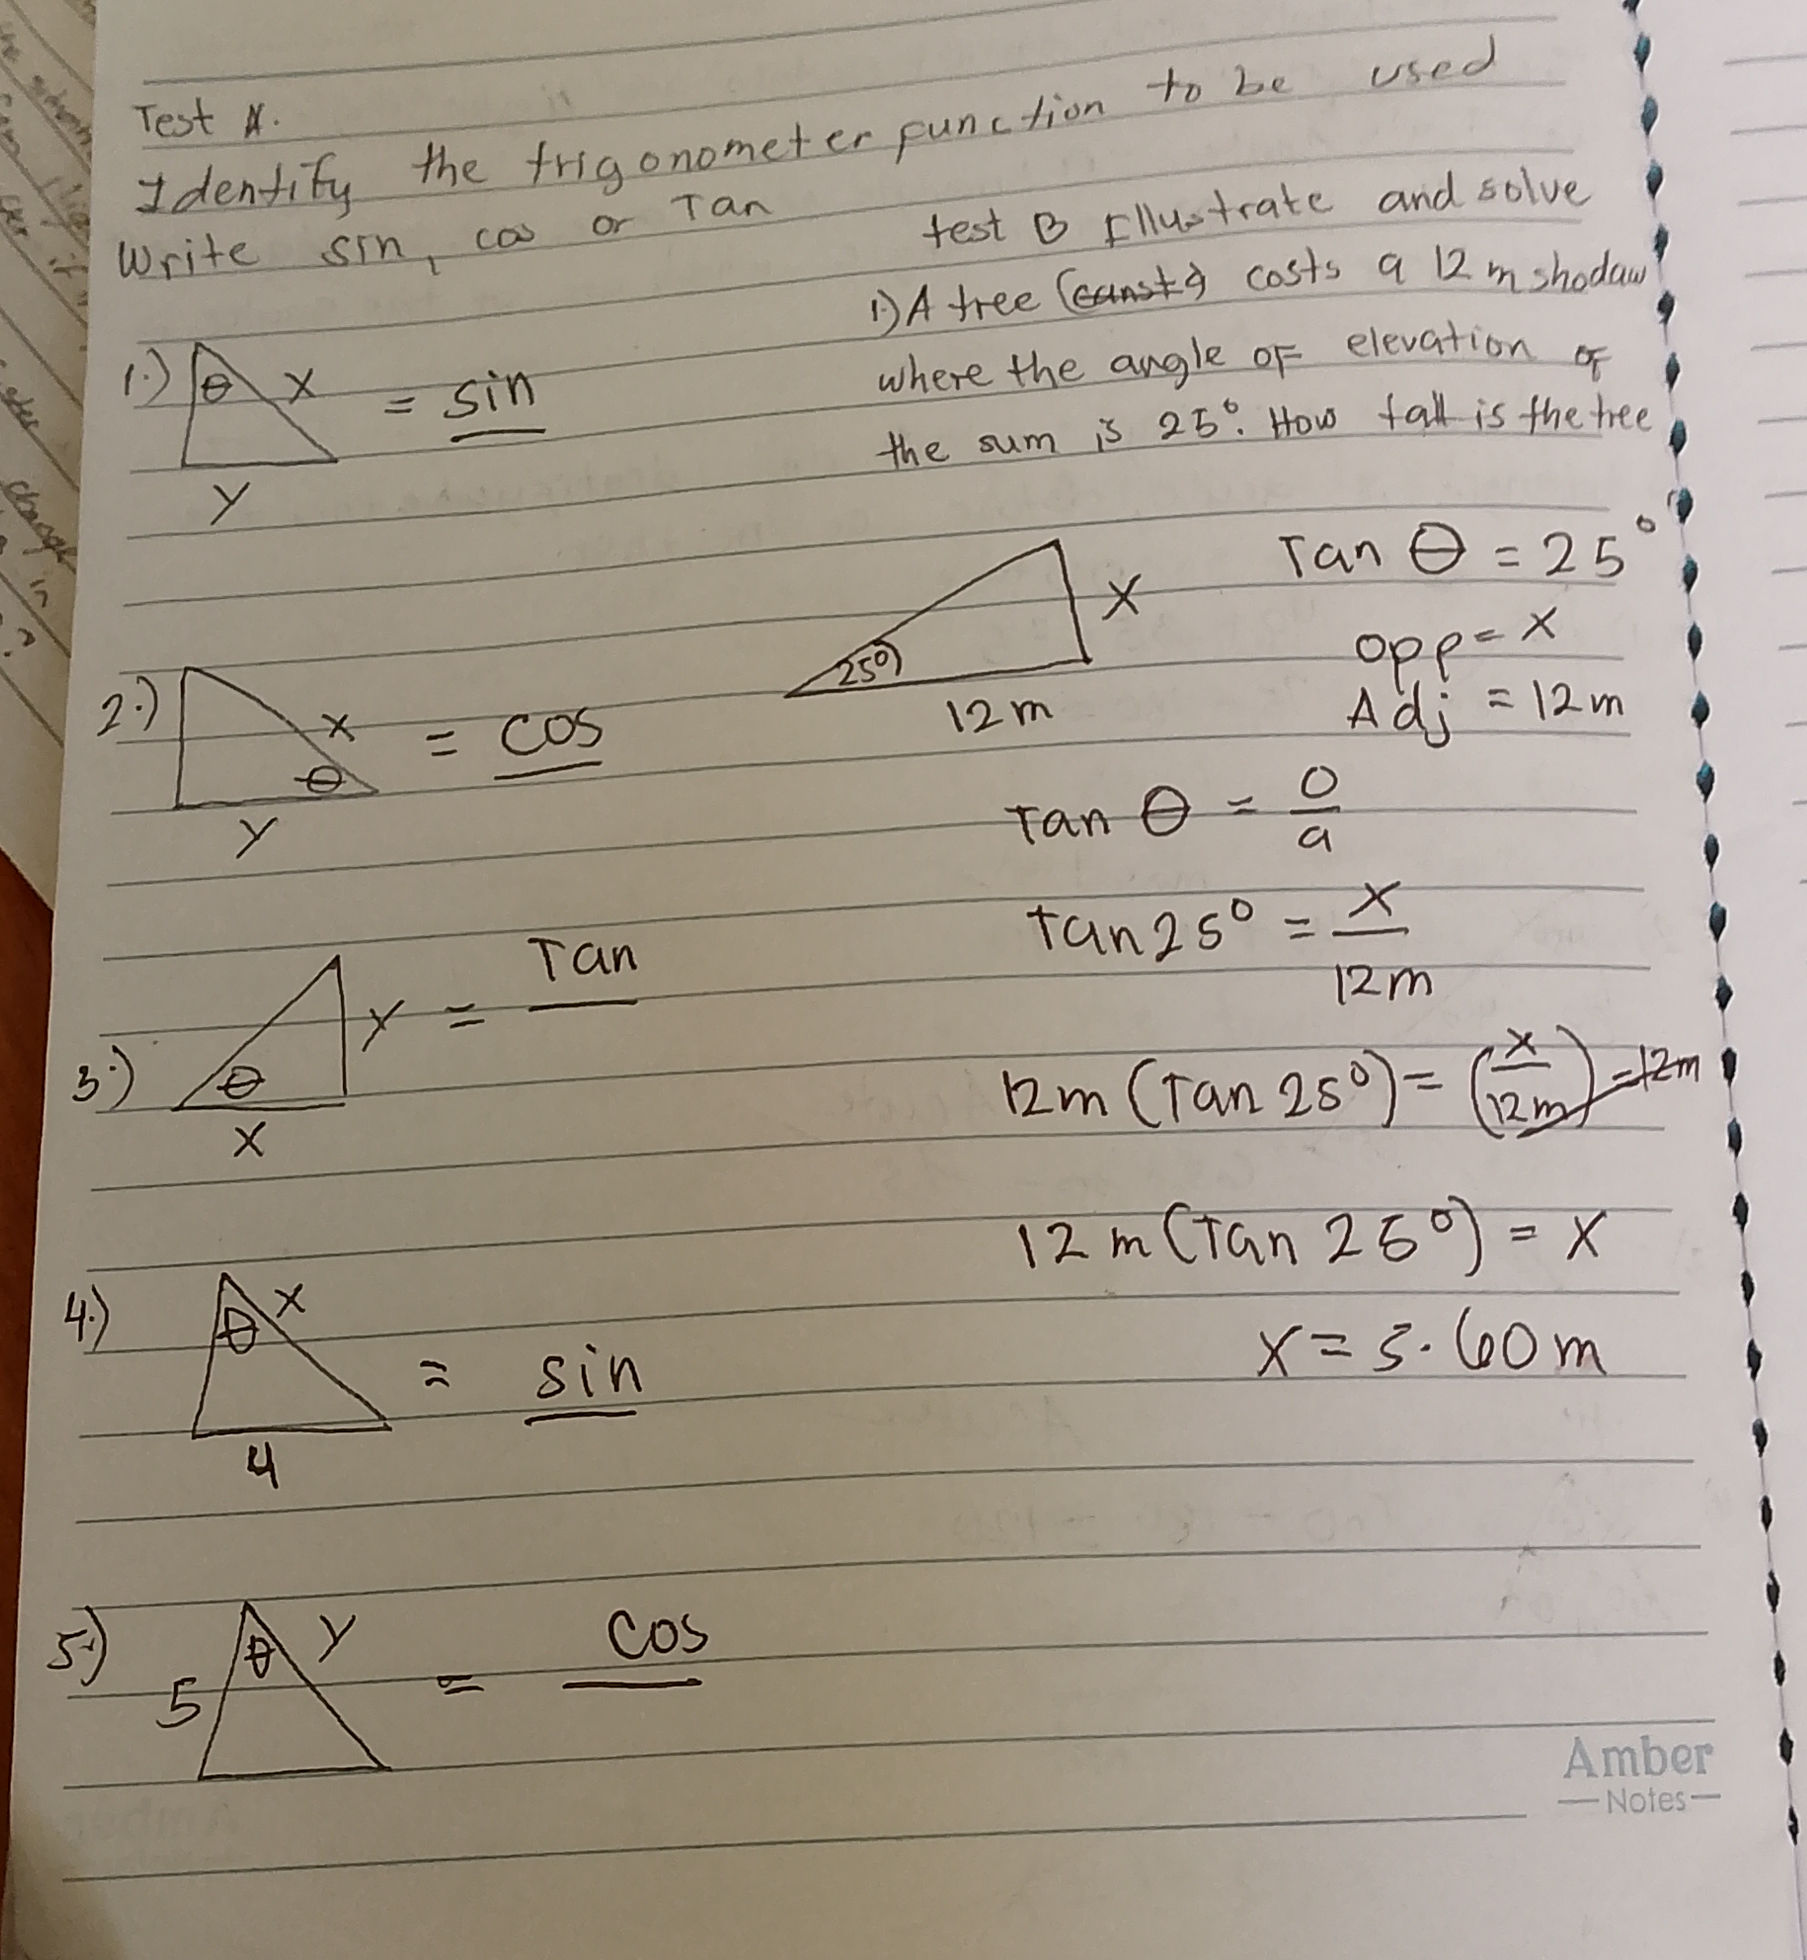 Test A.
Identify the trigonometer function to be used
Write sin, cos or Tan
1.) θ x = sin
y
2.) x = cos
θ
y
3.) θ y = Tan
x
4.) θ x = sin
4
5.) 5 θ y = cos
test B Illustrate and solve
1.) A tree costs a 12 m shodaw
where the angle of elevation of
the sum is 25°. How tall is the tree
25° x
12 m
Tan θ = 25°
opp = x
Adj = 12m
Tan θ = o/a
tan 25° = x/12m
12m (Tan 25°) = (x/12m) 12m
12 m (Tan 25°) = x
x = 5.60 m
Amber
Notes